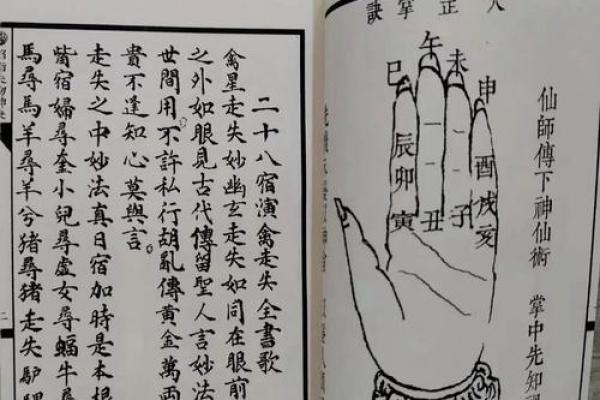 人正掌訣
仙師傳下神仙術 掌中先知
巳
午
未
申
辰卯寅
丑
子
酉戌亥
二十八宿演禽走失全書歌
禽星走失妙幽玄走失如同在眼前
之外如眼見古代傳留聖人言妙法
世間用。不許私行胡亂傳黃金萬兩
貴不逢知心莫與言。
走失之中妙法真日宿加時是本根
觜宿婦尋奎小兒尋虛女尋蝠牛尋
馬尋馬羊尋羊兮猪尋猪走失驢